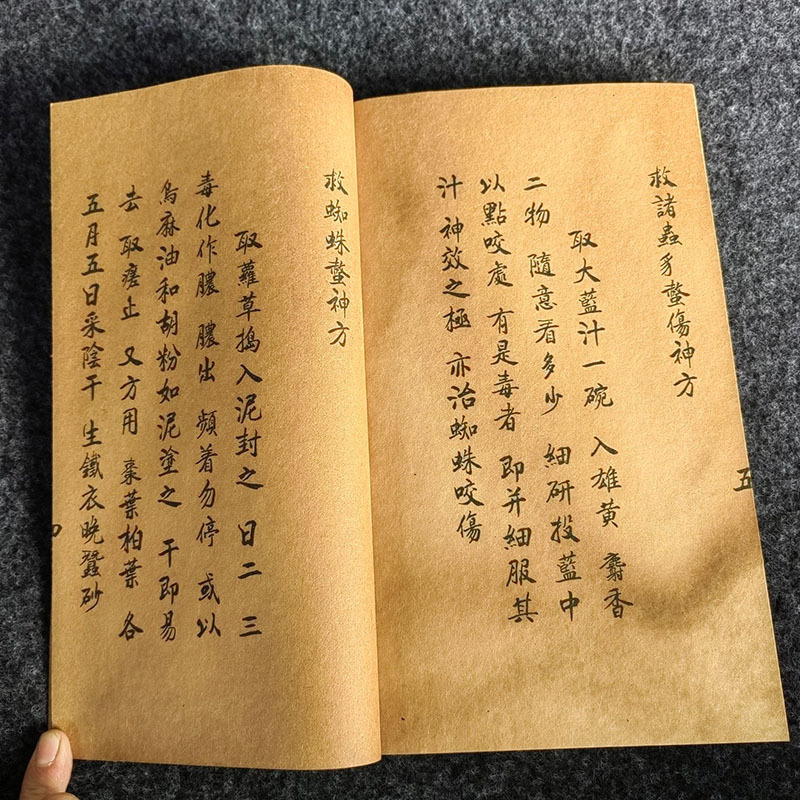 救諸蟲豸螫傷神方
取大藍汁一碗 入雄黃 麝香
二物 隨意看多少 細研投藍中
以點咬處 有是毒者 即并細服其
汁 神效之極 亦治蜘蛛咬傷
五
救蜘蛛螫神方
取蘿草搗入泥封之 日二 三
毒化作膿 膿出 頻着勿停 或以
烏麻油和胡粉如泥塗之 干即易
去 取瘥止 又方用 棗葉柏葉 各
五月五日采陰干 生鐵衣晚蠶砂